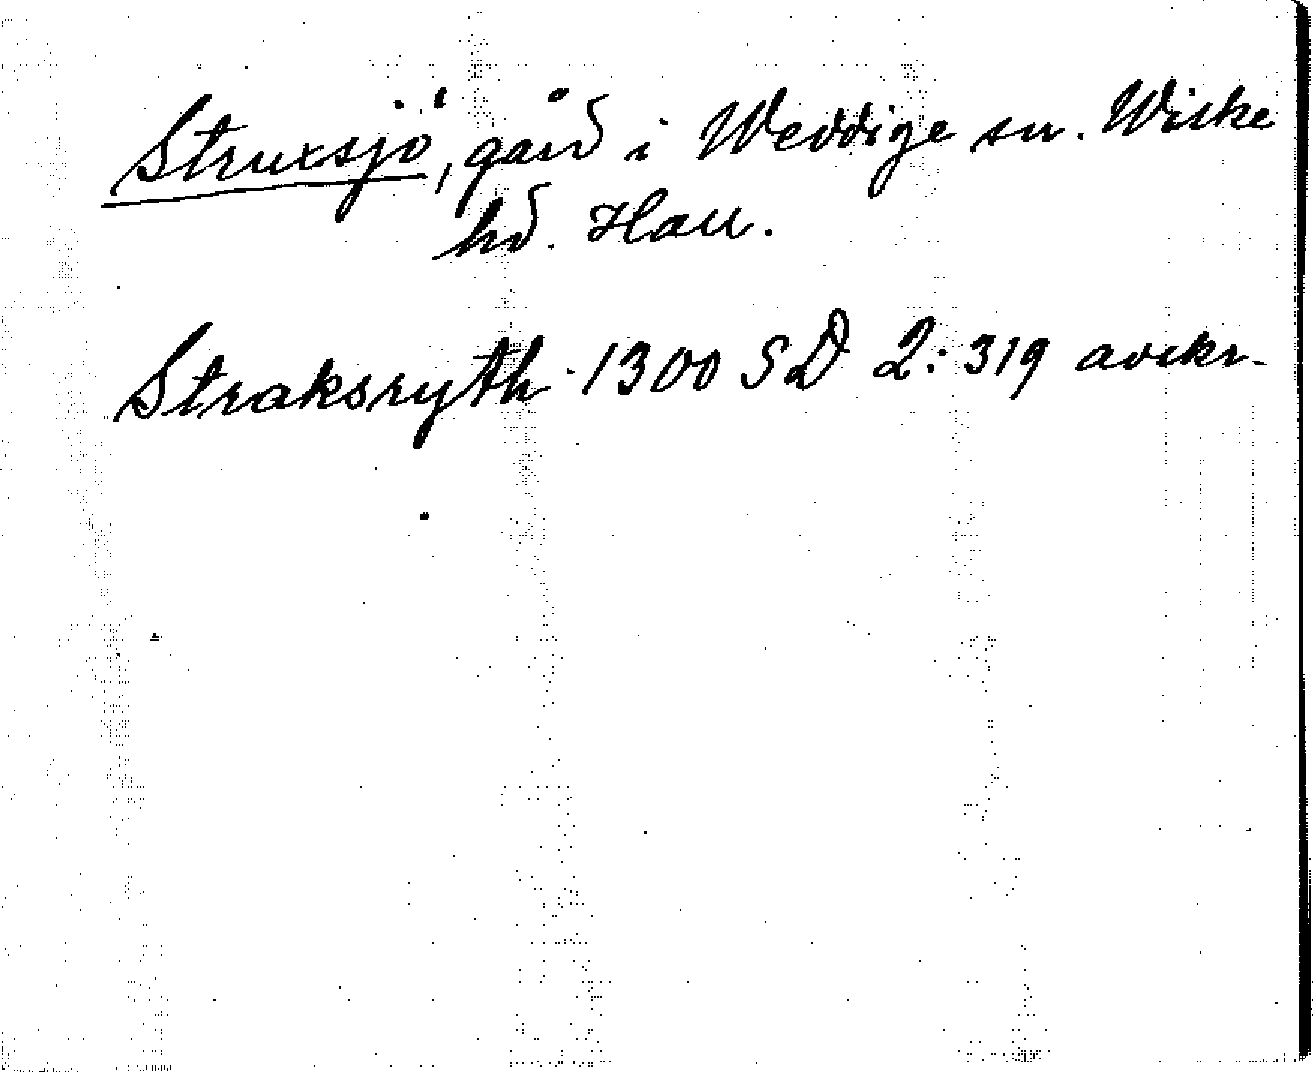 Struxsjö, gård i Weddige sn. Wiske
hd. Hall.
Straksryth 1300 SD 2: 319 avskr.